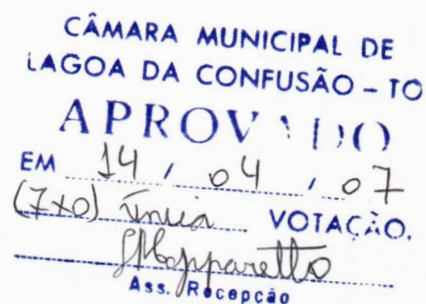 CÂMARA MUNICIPAL DE
LAGOA DA CONFUSÃO – TO
APROVADO
EM 14 / 04 / 07
(7x0) única VOTAÇÃO.
Ass. Recepção